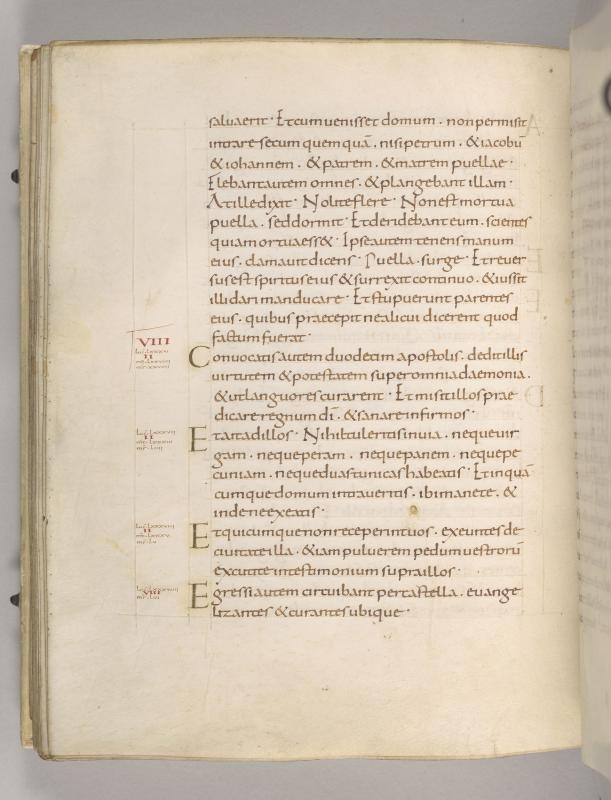 saluaerit · Et cum uenisset domum · non permisit
intrare secum quemquā · nisi petrum · & iacobū
& iohannem · & patrem · & matrem puellae ·
Flebant autem omnes · & plangebant illam ·
At ille dixit · Nolite flere · Non est mortua
puella · sed dormit · Et deridebant eum · scientes
quia mortua ess& · Ipse autem tenens manum
eius · clamauit dicens · Puella · surge · Et reuer
sus est spiritus eius & surrexit continuo · & iussit
illi dari manducare · Et stupuerunt parentes
eius · quibus praecepit ne alicui dicerent quod
factum fuerat ·
VIII
Conuocatis autem duodecim apostolis · dedit illis
uirtutem & potestatem super omnia daemonia ·
& ut languores curarent · Et misit illos prae
dicare regnum dī · & sanare infirmos ·
II
Et ait ad illos · Nihil tuleritis in uia · neque uir
gam · neque peram · neque panem · neque pe
cuniam · neque duas tunicas habeatis · Et in quā
cumque domum intraueritis · ibi manete · &
inde ne exeatis ·
II
Et quicumque non receperint uos · exeuntes de
ciuitate illa · &iam puluerem pedum uestrorū
excutite in testimonium supra illos ·
VIII
Egressi autem circuibant per castella · euange
lizantes & curantes ubique ·